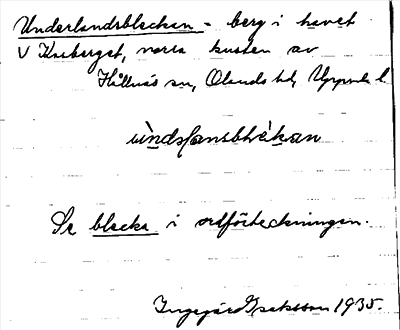 Underlandsbleckan - berg i havet
V Kneberget, norra kusten av
Hållnäs sn, Olands hd, Uppsala l.
Se blecka i ordförteckningen.
Ingegärd Isaksson 1935.